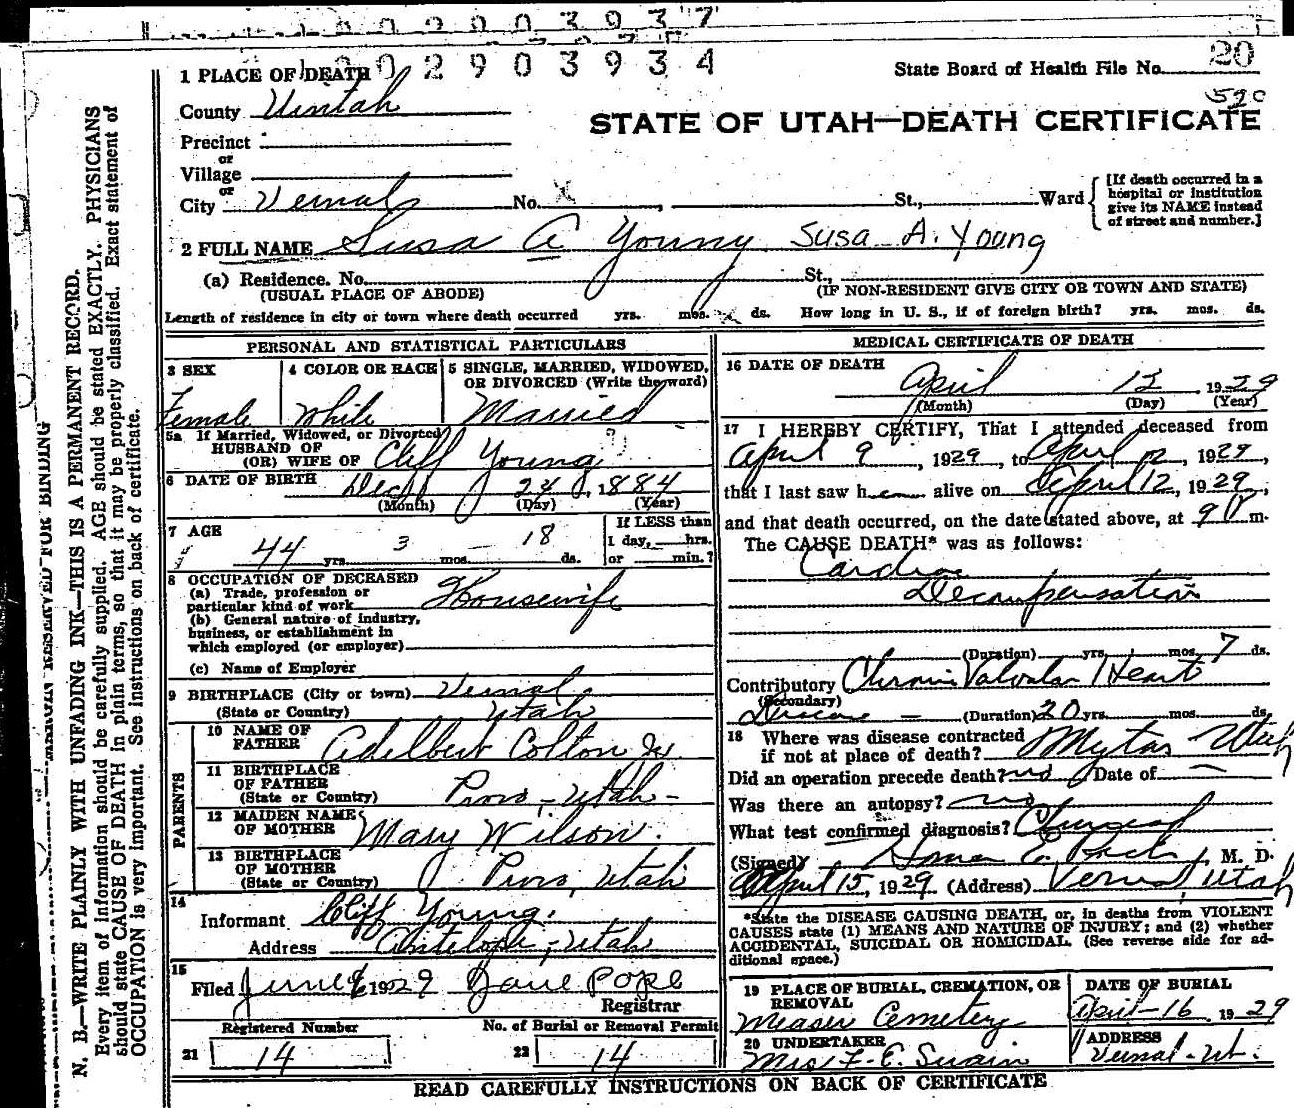 0 2 9 0 0 3 9 3 7
2 9 0 3 9 3 4
State Board of Health File No. 20
590
STATE OF UTAH—DEATH CERTIFICATE
1 PLACE OF DEATH
County Uintah
Precinct
or
Village
or
City Vernal No. X , St., Ward
[If death occurred in a hospital or institution give its NAME instead of street and number.]
2 FULL NAME Susa A Young Susa A. Young
(a) Residence. No. St.,
(USUAL PLACE OF ABODE) (IF NON-RESIDENT GIVE CITY OR TOWN AND STATE)
Length of residence in city or town where death occurred yrs. mos. X ds. How long in U. S., if of foreign birth? yrs. mos. ds.
PERSONAL AND STATISTICAL PARTICULARS
3 SEX
Female
4 COLOR OR RACE
White
5 SINGLE, MARRIED, WIDOWED,
OR DIVORCED (Write the word)
Married
5a If Married, Widowed, or Divorced
HUSBAND OF
(OR) WIFE OF Cliff Young ?
6 DATE OF BIRTH Dec 24, 1884
(Month) (Day) (Year)
7 AGE
44 yrs. 3 mos. – 18 ds.
If LESS than
1 day, hrs.
or min.?
8 OCCUPATION OF DECEASED
(a) Trade, profession or
particular kind of work Housewife
(b) General nature of industry,
business, or establishment in
which employed (or employer)
(c) Name of Employer
9 BIRTHPLACE (City or town) Vernal
(State or Country) Utah
PARENTS
10 NAME OF
FATHER Adelbert Colton
11 BIRTHPLACE
OF FATHER
(State or Country) Provo - Utah -
12 MAIDEN NAME
OF MOTHER Mary Wilson.
13 BIRTHPLACE
OF MOTHER
(State or Country) Provo, Utah
14
Informant Cliff Young.
Address Antelope, Utah
15
Filed June 1929 Jane Pope
Registrar
Registered Number
21 14
No. of Burial or Removal Permit
22 14
MEDICAL CERTIFICATE OF DEATH
16 DATE OF DEATH
April 12, 1929
(Month) (Day) (Year)
17 I HEREBY CERTIFY, That I attended deceased from
April 9, 1929, to April 12, 1929,
that I last saw her alive on April 12, 1929,
and that death occurred, on the date stated above, at 9 P m.
The CAUSE DEATH* was as follows:
Cardiac
Decompensation
(Duration) yrs. mos. 7 ds.
Contributory Chronic Valvular Heart
(Secondary)
Disease – (Duration) 20 yrs. mos. ds.
18 Where was disease contracted
if not at place of death? Myton Utah
Did an operation precede death? no Date of —
Was there an autopsy? no
What test confirmed diagnosis?
(Signed) E. M. D.
April 15, 1929 (Address) Vernal, Utah
*State the DISEASE CAUSING DEATH, or, in deaths from VIOLENT
CAUSES state (1) MEANS AND NATURE OF INJURY; and (2) whether
ACCIDENTAL, SUICIDAL OR HOMICIDAL. (See reverse side for ad-
ditional space.)
19 PLACE OF BURIAL, CREMATION, OR
REMOVAL
Cemetery
DATE OF BURIAL
April-16 1929
20 UNDERTAKER
Mrs F. E. Swain
ADDRESS
Vernal - Ut.
READ CAREFULLY INSTRUCTIONS ON BACK OF CERTIFICATE
RESERVED FOR BINDING
N. B.—WRITE PLAINLY WITH UNFADING INK—THIS IS A PERMANENT RECORD.
Every item of information should be carefully supplied. AGE should be stated EXACTLY. PHYSICIANS
should state CAUSE OF DEATH in plain terms, so that it may be properly classified. Exact statement of
OCCUPATION is very important. See instructions on back of certificate.